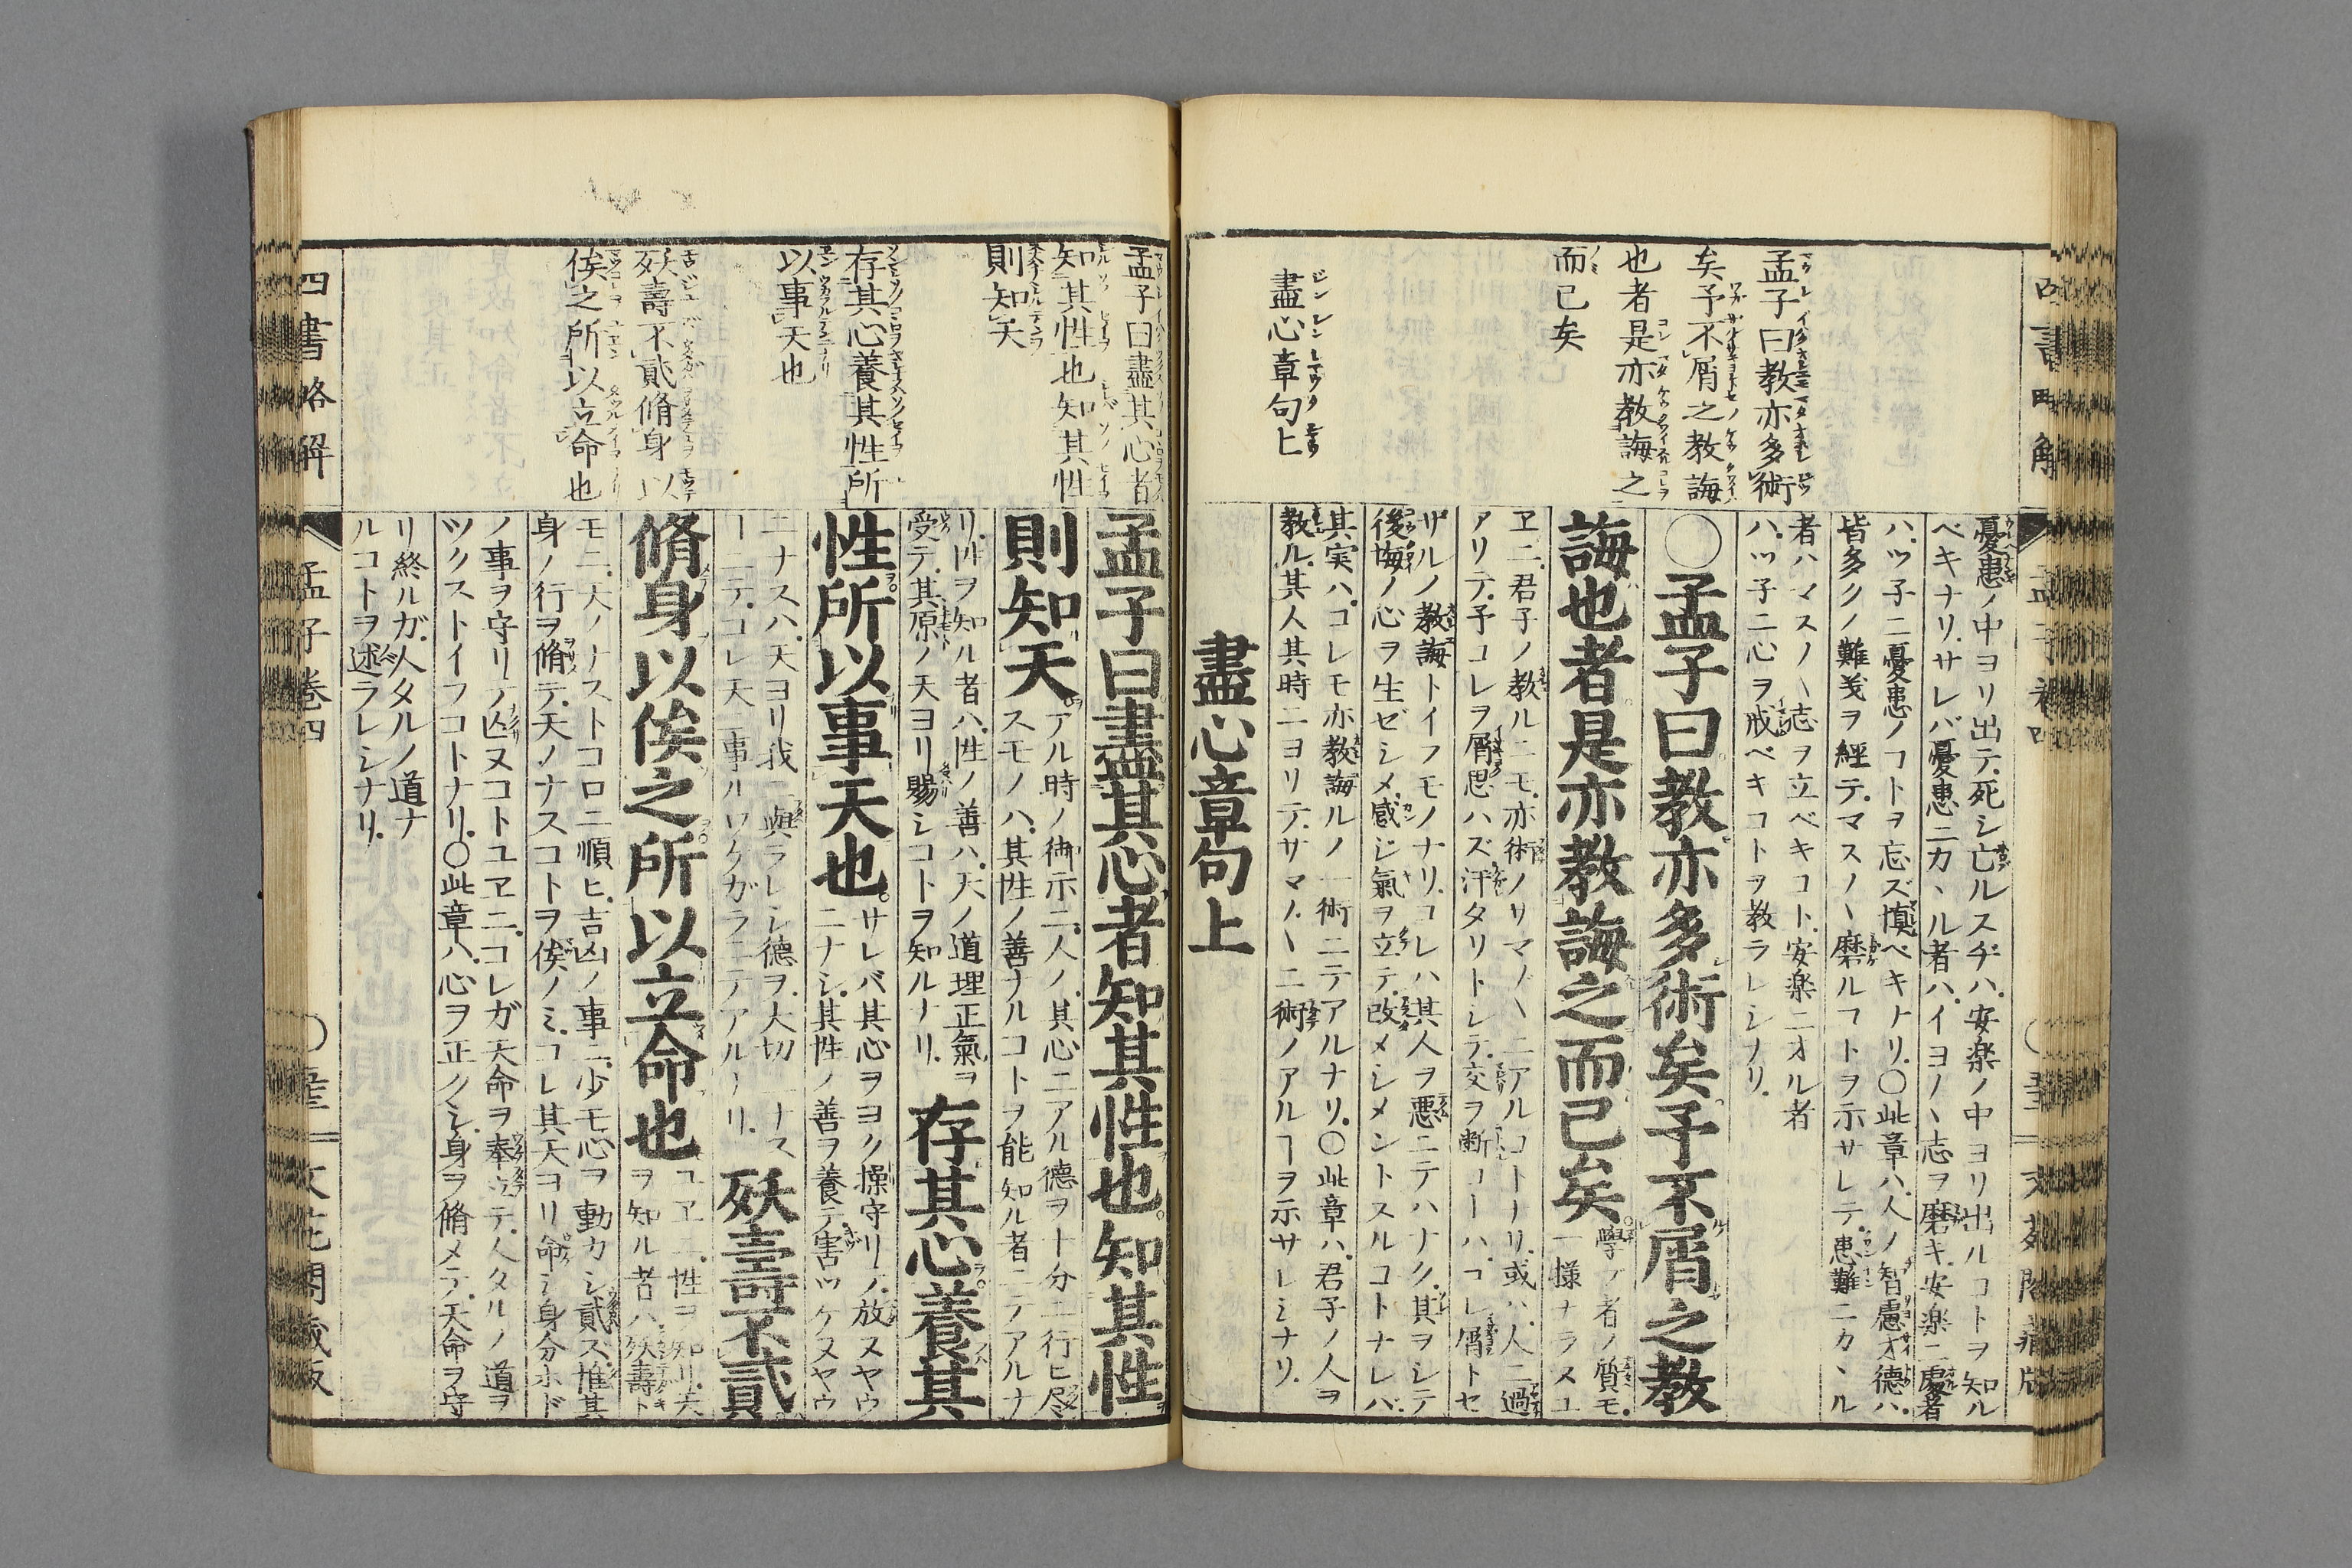 孟子曰教亦多術
矣予不屑之教誨
也者是亦教誨之
而已矣
盡心章句上
憂患ノ中ヨリ出テ死シ亡ルスヂハ安楽ノ中ヨリ出ルコトヲ知ル
ベキナリサレバ憂患ニカヽル者ハイヨ〳〵志ヲ磨キ安楽ニ處者
ハツ子ニ憂患ノコトヲ忘ズ慎ベキナリ○此章ハ人ノ智慮才德ハ
皆多クノ難義ヲ經テマス〳〵磨ルコトヲ示サレテ患難ニカヽル
者ハマス〳〵志ヲ立ベキコト安楽ニオル者
ハツ子ニ心ヲ戒ベキコトヲ教ラレシナリ
○孟子曰教亦多術矣予不屑之教
誨也者是亦教誨之而已矣
學ブ者ノ質モ
一様ナラスユ
ヱニ君子ノ教ルニモ亦術ノサマ〴〵ニアルコトナリ或ハ人ニ過
アリテ予コレヲ屑思ハズ汗タリトシテ交ヲ断コーハコレ屑トセ
ザルノ教誨トイフモノナリコレハ其人ヲ惡ニテハナク其ヲシテ
後悔ノ心ヲ生ゼシメ感ジ氣ヲ立テ改メシメントスルコトナレバ
其実ハコレモ亦教誨ルノ一術ニテアルナリ○此章ハ君子ノ人ヲ
教ル其人其時ニヨリテサマ〴〵ニ術ノアルヿヲ示サレシナリ
盡心章句上
孟子曰盡其心者
知其性也知其性
則知天
存其心養其性所
以事天也
殀壽不貳脩身以
俟之所以立命也
孟子曰盡其心者知其性也知其性
則知天
アル時ノ御示ニ人ノ其心ニアル德ヲ十分ニ行ヒ尽
スモノハ其性ノ善ナルコトヲ能知ル者ニテアルナ
リ性ヲ知ル者ハ性ノ善ハ天ノ道理正氣ヲ
受テ其原ノ天ヨリ賜シコトヲ知ルナリ
存其心養其
性所以事天也
サレバ其心ヲヨク操守リテ放スヤウ
ニナシ其性ノ善ヲ養テ害ツケヌヤウ
ニナスハ天ヨリ我ニ與ラレシ德ヲ大切ニナス
ーニテコレ天ニ事ルワケガラニテアルナリ
殀壽不貳
脩身以俟之所以立命也
ユヱニ性ヲ知リ天
ヲ知ル者ハ殀壽ト
モニ天ノナストコロニ順ヒ吉凶ノ事ニ少モ心ヲ動カシ貳ズ惟其
身ノ行ヲ脩テ天ノナスコトヲ俟ノミコレ其天ヨリ命シ身分ホド
ノ事ヲ守リテ凶ヌコトユヱニコレガ天命ヲ奉立テ人タルノ道ヲ
ツクストイフコトナリ○此章ハ心ヲ正クシ身ヲ脩メテ天命ヲ守
リ終ルガ人タルノ道ナ
ルコトヲ述ラレシナリ
四書略解
孟子巻四